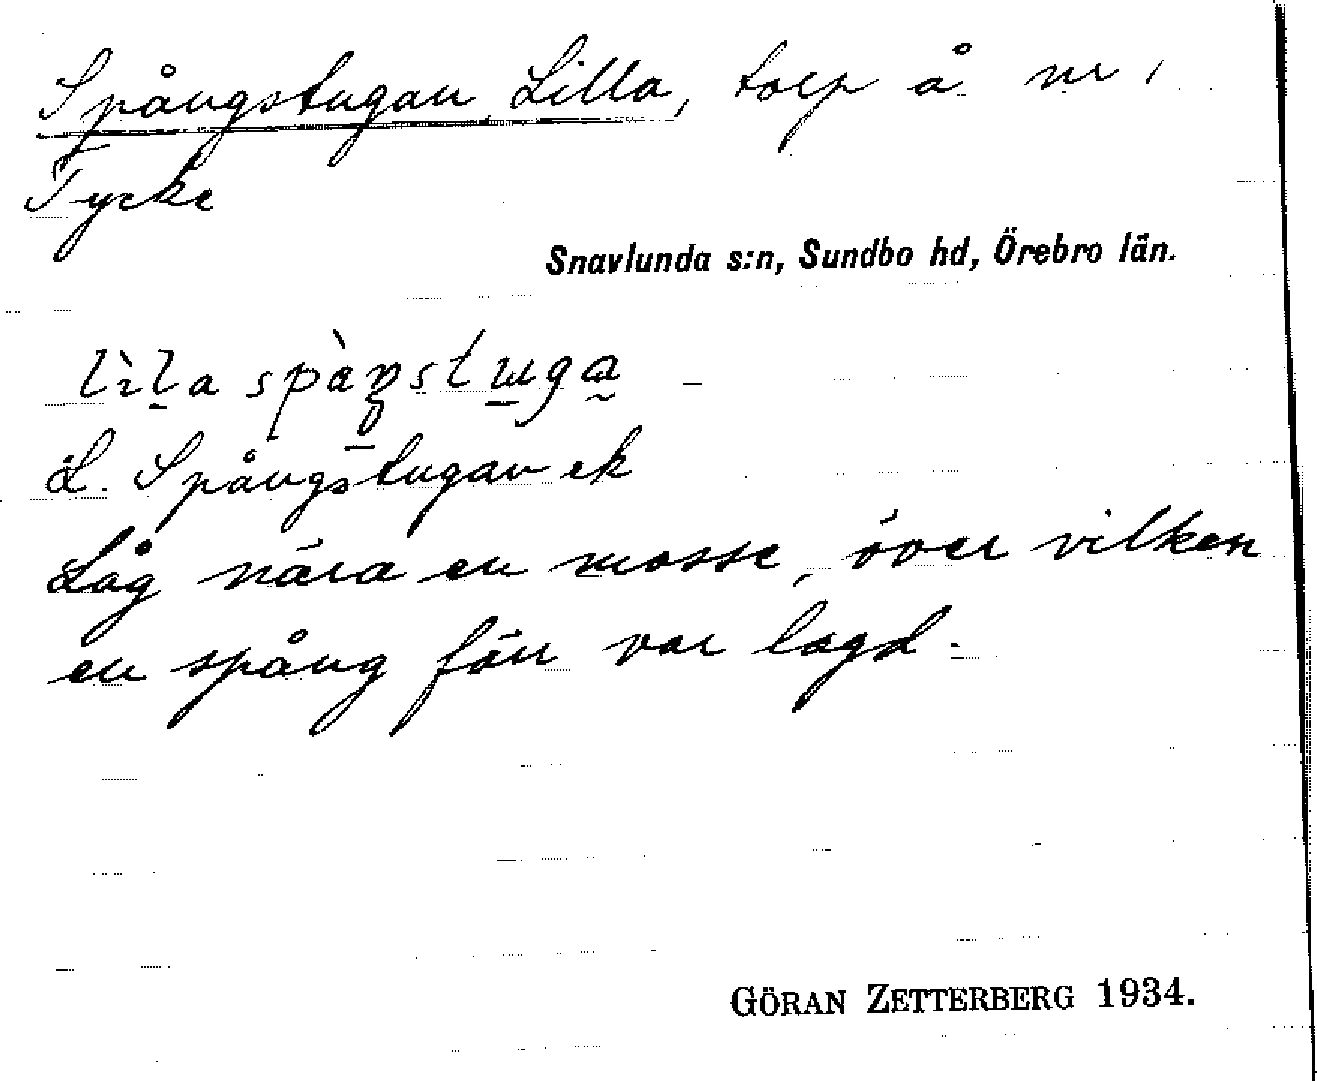 Spångstugan Lilla, torp å nr 1
Tycke
Snavlunda s:n, Sundbo hd, Örebro län.
L. Spångstugan ek
Låg nära en mosse, över vilken
en spång förr var lagd.
GÖRAN ZETTERBERG 1934.